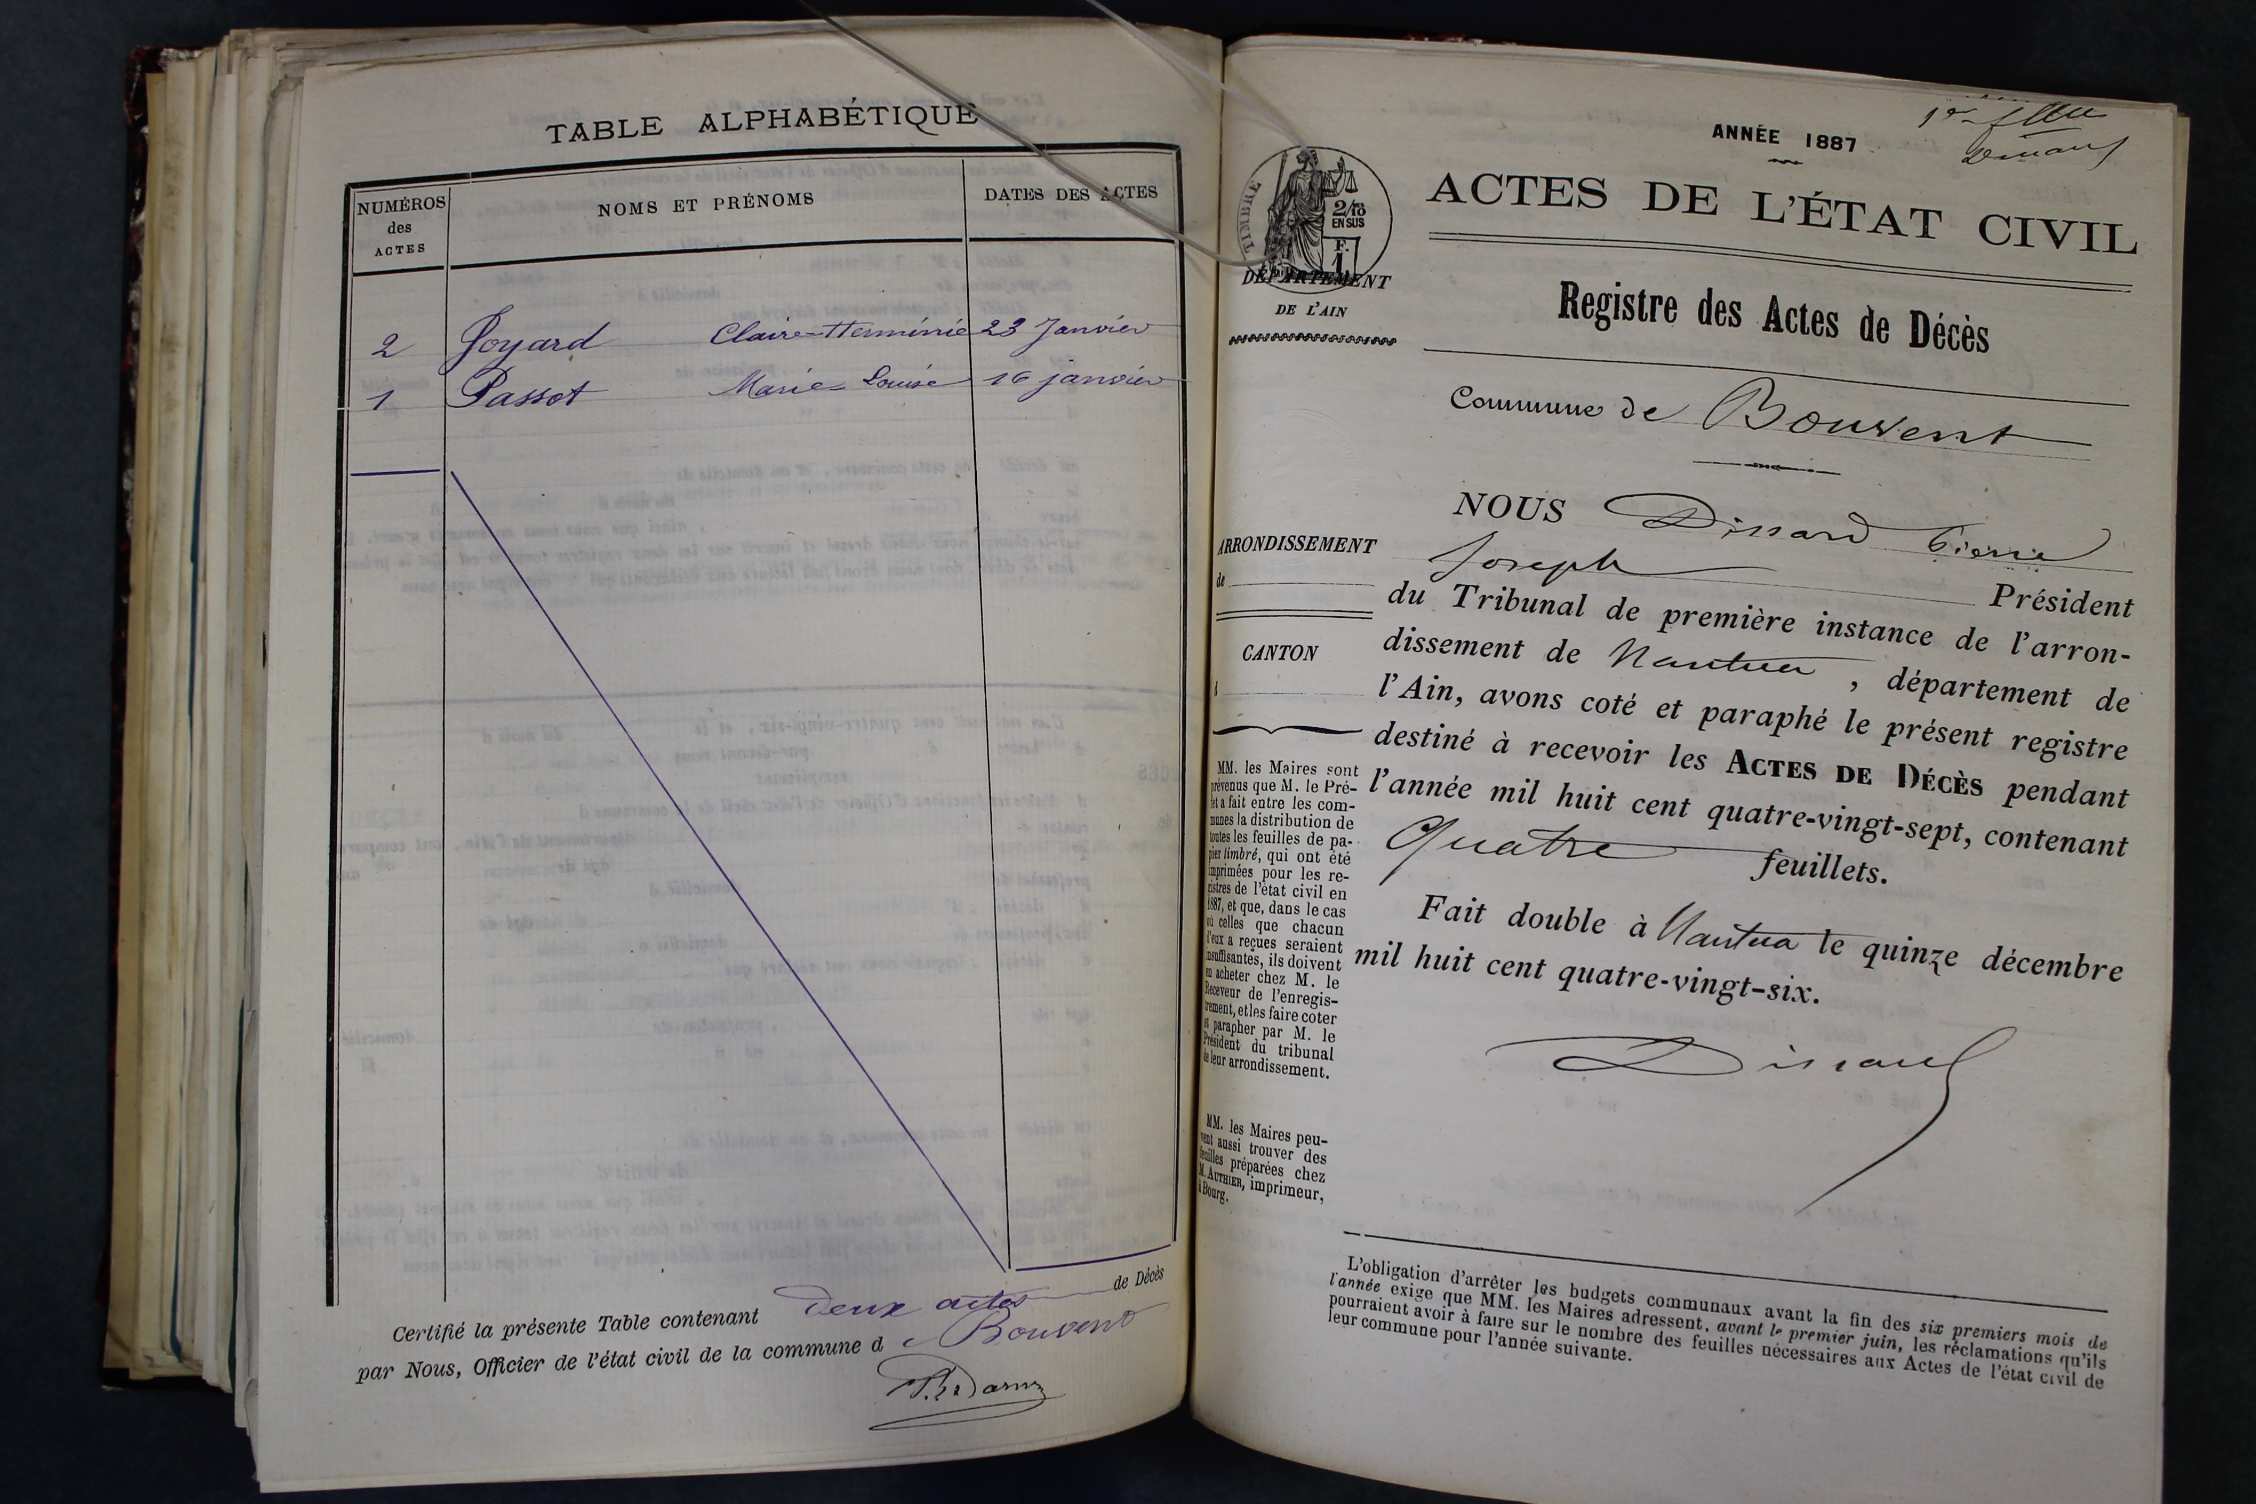 TABLE ALPHABÉTIQUE
NUMÉROS
des
ACTES
NOMS ET PRÉNOMS
DATES DES ACTES
2 Joyard Claire-Herminie 23 Janvier
1 Passot Marie Louise 16 janvier
Certifié la présente Table contenant deux actes de Décès
par Nous, Officier de l'état civil de la commune de Bouvent
ANNÉE 1887
TIMBRE
2/10
EN SUS
F.
1
ACTES DE L'ÉTAT CIVIL
DÉPARTEMENT
DE L'AIN
Registre des Actes de Décès
Commune de Bouvent
ARRONDISSEMENT
de
CANTON
MM. les Maires sont
prévenus que M. le Pré-
fet a fait entre les com-
munes la distribution de
toutes les feuilles de pa-
pier timbré, qui ont été
imprimées pour les re-
gistres de l'état civil en
1887, et que, dans le cas
où celles que chacun
d'eux a reçues seraient
insuffisantes, ils doivent
en acheter chez M. le
Receveur de l'enregis-
trement, et les faire coter
et parapher par M. le
Président du tribunal
de leur arrondissement.
MM. les Maires peu-
vent aussi trouver des
feuilles préparées chez
M. AUTHIER, imprimeur,
à Bourg.
NOUS Dissard Pierre
Joseph Président
du Tribunal de première instance de l'arron-
dissement de Nantua, département de
l'Ain, avons coté et paraphé le présent registre
destiné à recevoir les ACTES DE DÉCÈS pendant
l'année mil huit cent quatre-vingt-sept, contenant
Quatre feuillets.
Fait double à Nantua le quinze décembre
mil huit cent quatre-vingt-six.
Dissard
L'obligation d'arrêter les budgets communaux avant la fin des six premiers mois de
l'année exige que MM. les Maires adressent, avant le premier juin, les réclamations qu'ils
pourraient avoir à faire sur le nombre des feuilles nécessaires aux Actes de l'état civil de
leur commune pour l'année suivante.